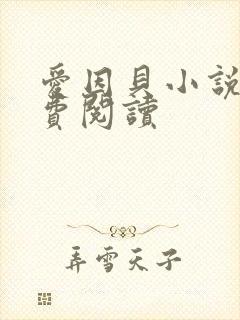 愛因貝小說
費閱讀
弄雪天子